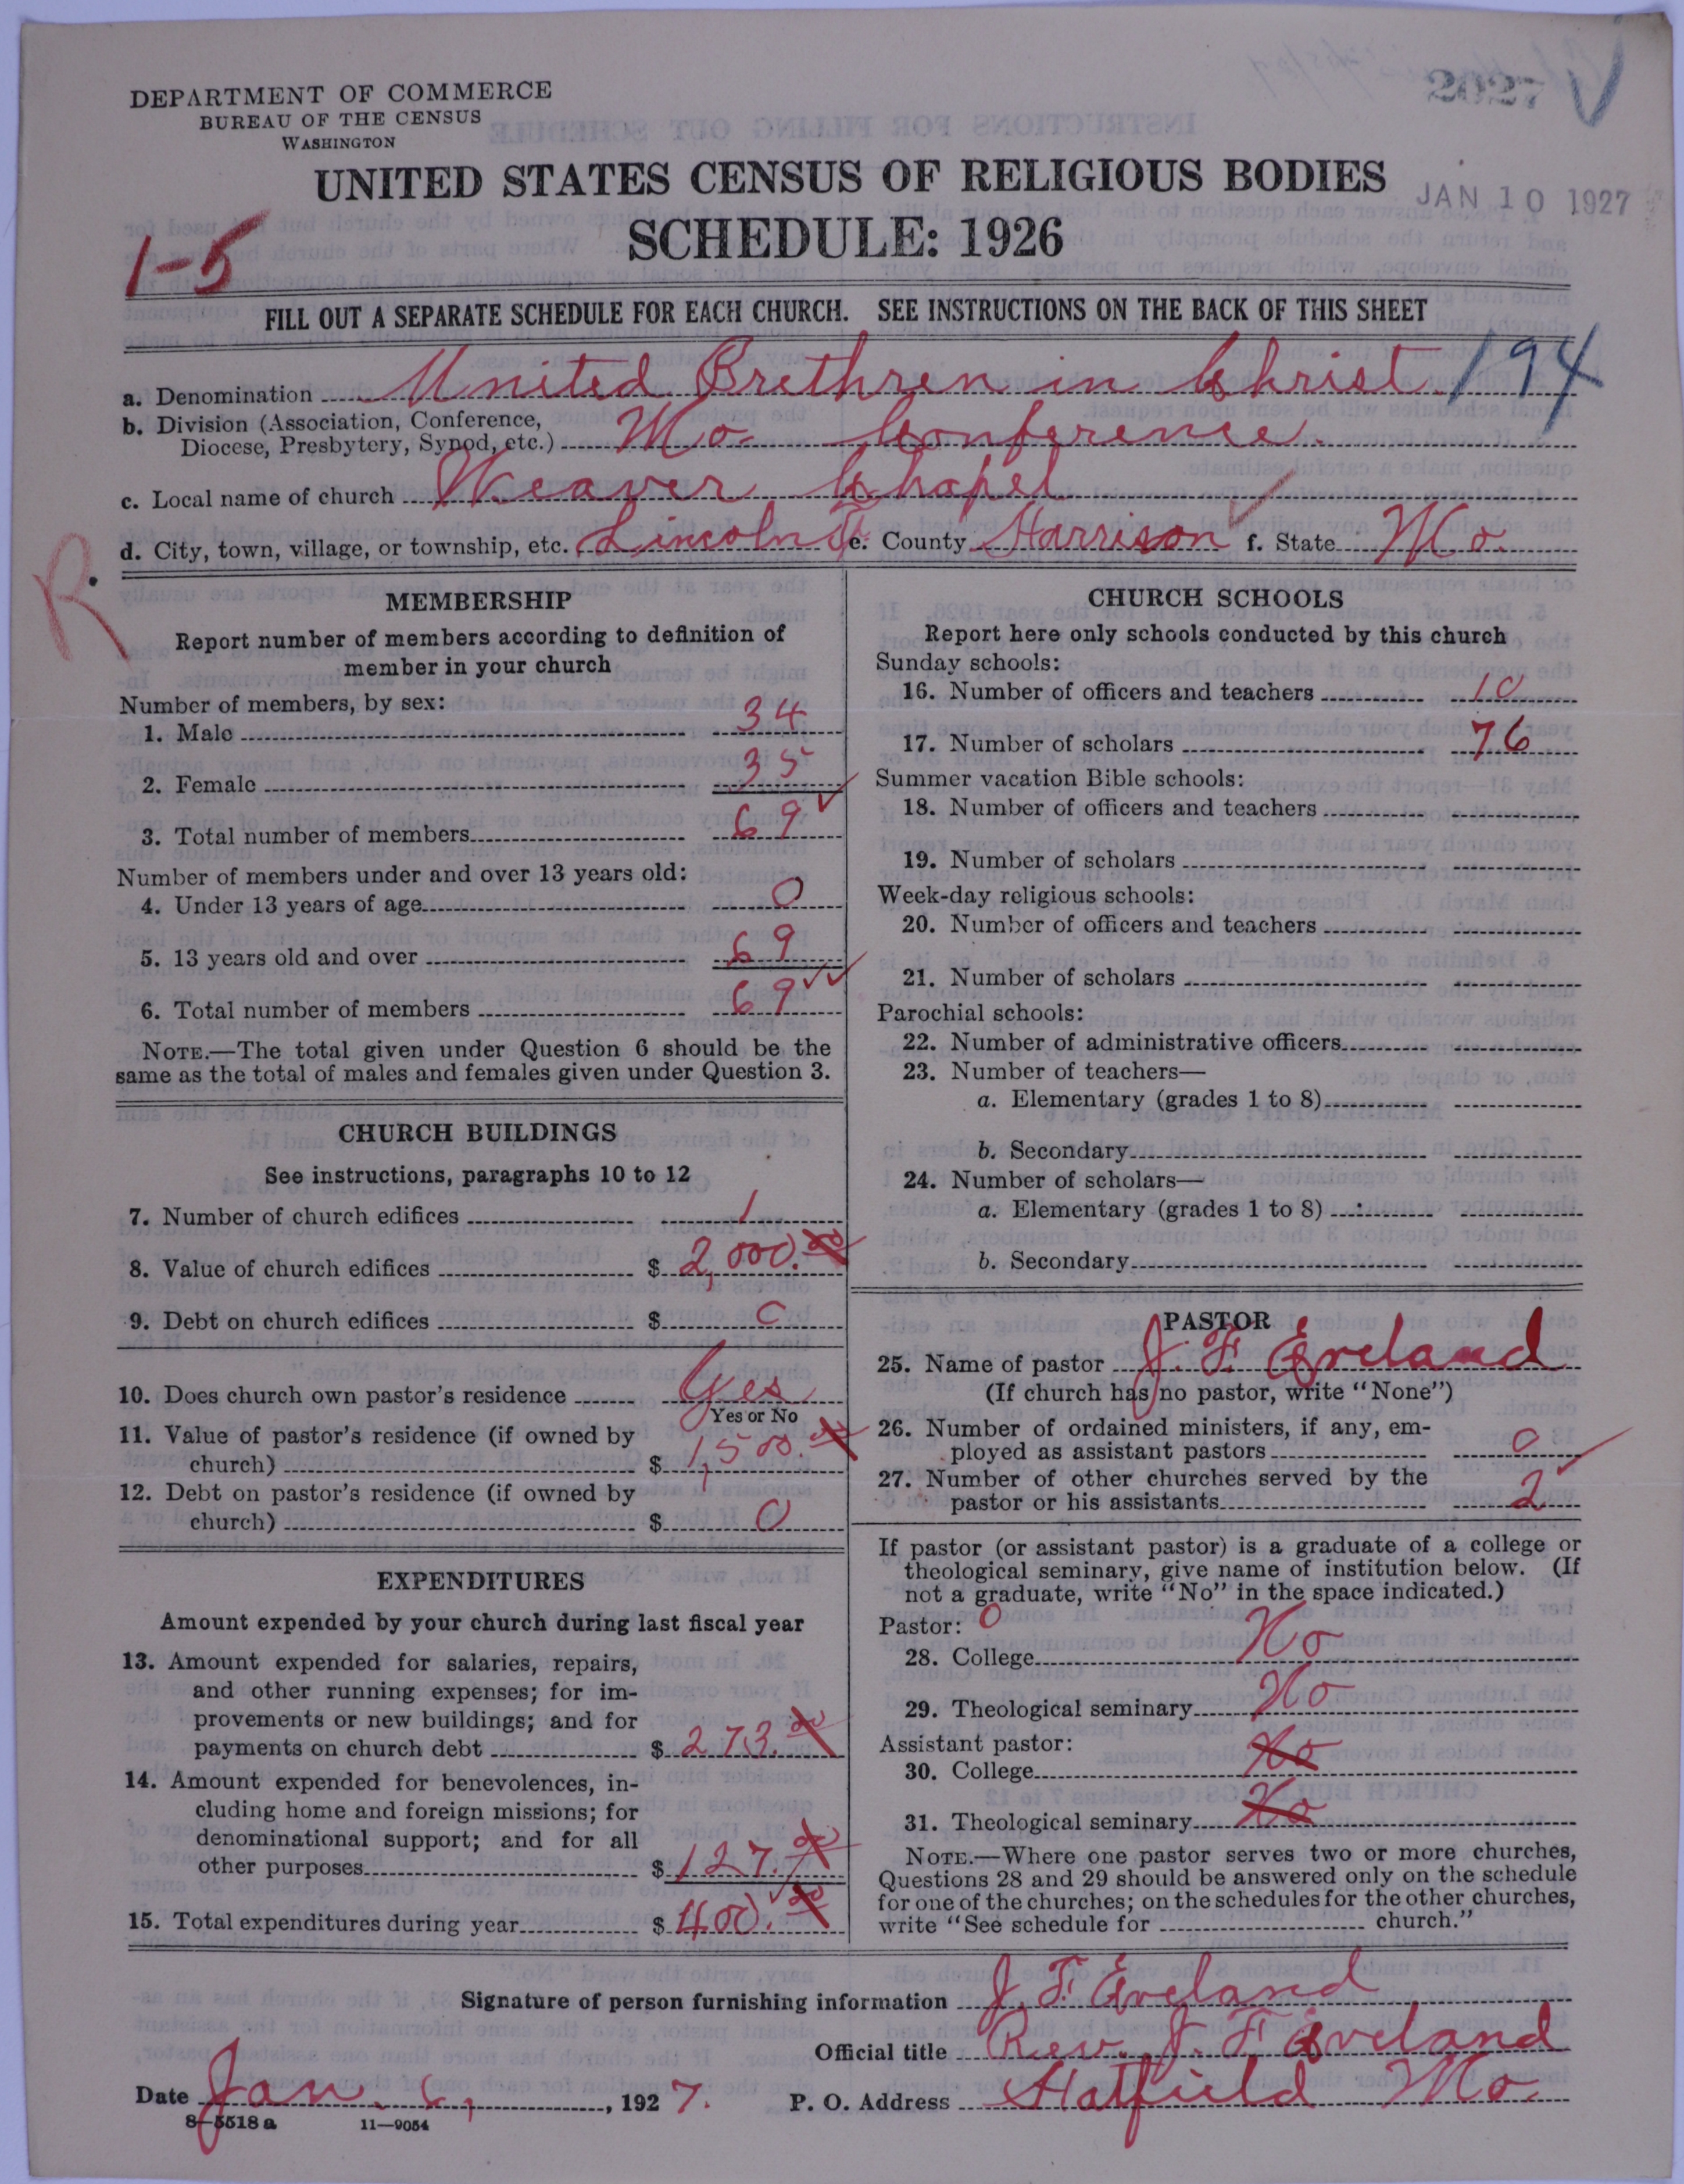 2027
DEPARTMENT OF COMMERCE
BUREAU OF THE CENSUS
WASHINGTON
UNITED STATES CENSUS OF RELIGIOUS BODIES
JAN 10 1927
SCHEDULE: 1926
1-5
FILL OUT A SEPARATE SCHEDULE FOR EACH CHURCH. SEE INSTRUCTIONS ON THE BACK OF THIS SHEET
a. Denomination United Brethren in Christ. 194
b. Division (Association, Conference,
Diocese, Presbytery, Synod, etc.) Mo Conference.
c. Local name of church Weaver Chapel
d. City, town, village, or township, etc. Lincoln T. e. County Harrison f. State Mo.
R.
MEMBERSHIP
Report number of members according to definition of
member in your church
Number of members, by sex:
1. Male 34
2. Female 35
3. Total number of members 69
Number of members under and over 13 years old:
4. Under 13 years of age 0
5. 13 years old and over 69
6. Total number of members 69
NOTE.—The total given under Question 6 should be the
same as the total of males and females given under Question 3.
CHURCH BUILDINGS
See instructions, paragraphs 10 to 12
7. Number of church edifices 1
8. Value of church edifices $ 2,000.00
9. Debt on church edifices $ 0
10. Does church own pastor's residence Yes
Yes or No
11. Value of pastor's residence (if owned by
church) $ 1,500.00
12. Debt on pastor's residence (if owned by
church) $ 0
EXPENDITURES
Amount expended by your church during last fiscal year
13. Amount expended for salaries, repairs,
and other running expenses; for im-
provements or new buildings; and for
payments on church debt $ 273.00
14. Amount expended for benevolences, in-
cluding home and foreign missions; for
denominational support; and for all
other purposes $ 127.00
15. Total expenditures during year $ 400.00
CHURCH SCHOOLS
Report here only schools conducted by this church
Sunday schools:
16. Number of officers and teachers 10
17. Number of scholars 76
Summer vacation Bible schools:
18. Number of officers and teachers
19. Number of scholars
Week-day religious schools:
20. Number of officers and teachers
21. Number of scholars
Parochial schools:
22. Number of administrative officers
23. Number of teachers—
a. Elementary (grades 1 to 8)
b. Secondary
24. Number of scholars—
a. Elementary (grades 1 to 8)
b. Secondary
PASTOR
25. Name of pastor J. F. Eveland
(If church has no pastor, write "None")
26. Number of ordained ministers, if any, em-
ployed as assistant pastors 0
27. Number of other churches served by the
pastor or his assistants 2
If pastor (or assistant pastor) is a graduate of a college or
theological seminary, give name of institution below. (If
not a graduate, write "No" in the space indicated.)
Pastor: 0
28. College No
29. Theological seminary No
Assistant pastor:
30. College No
31. Theological seminary No
NOTE.—Where one pastor serves two or more churches,
Questions 28 and 29 should be answered only on the schedule
for one of the churches; on the schedules for the other churches,
write "See schedule for church."
Signature of person furnishing information J. F. Eveland
Official title Rev. J. F. Eveland
Date Jan. 6, 1927. P. O. Address Hatfield Mo
8-5518 a 11-9054